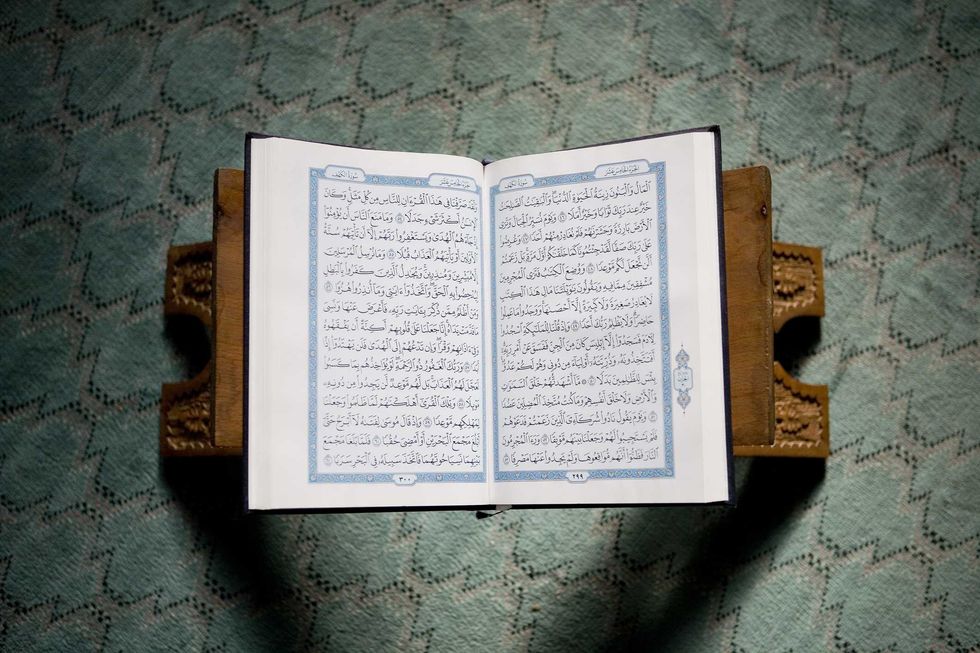 الجزء الخامس عشر
سورة الكهف
ٱلْمَالُ وَٱلْبَنُونَ زِينَةُ ٱلْحَيَوٰةِ ٱلدُّنْيَا وَٱلْبَٰقِيَٰتُ ٱلصَّٰلِحَٰتُ
خَيْرٌ عِندَ رَبِّكَ ثَوَابًا وَخَيْرٌ أَمَلًا ٤٦ وَيَوْمَ نُسَيِّرُ ٱلْجِبَالَ وَتَرَى
ٱلْأَرْضَ بَارِزَةً وَحَشَرْنَٰهُمْ فَلَمْ نُغَادِرْ مِنْهُمْ أَحَدًا ٤٧ وَعُرِضُوا۟
عَلَىٰ رَبِّكَ صَفًّا لَّقَدْ جِئْتُمُونَا كَمَا خَلَقْنَٰكُمْ أَوَّلَ مَرَّةٍۭ بَلْ زَعَمْتُمْ
أَلَّن نَّجْعَلَ لَكُم مَّوْعِدًا ٤٨ وَوُضِعَ ٱلْكِتَٰبُ فَتَرَى ٱلْمُجْرِمِينَ
مُشْفِقِينَ مِمَّا فِيهِ وَيَقُولُونَ يَٰوَيْلَتَنَا مَالِ هَٰذَا ٱلْكِتَٰبِ
لَا يُغَادِرُ صَغِيرَةً وَلَا كَبِيرَةً إِلَّآ أَحْصَىٰهَا وَوَجَدُوا۟ مَا عَمِلُوا۟
حَاضِرًا وَلَا يَظْلِمُ رَبُّكَ أَحَدًا ٤٩ وَإِذْ قُلْنَا لِلْمَلَٰٓئِكَةِ ٱسْجُدُوا۟
لِءَادَمَ فَسَجَدُوٓا۟ إِلَّآ إِبْلِيسَ كَانَ مِنَ ٱلْجِنِّ فَفَسَقَ عَنْ أَمْرِ رَبِّهِۦٓ
أَفَتَتَّخِذُونَهُۥ وَذُرِّيَّتَهُۥٓ أَوْلِيَآءَ مِن دُونِى وَهُمْ لَكُمْ عَدُوٌّۢ
بِئْسَ لِلظَّٰلِمِينَ بَدَلًا ٥٠ مَّآ أَشْهَدتُّهُمْ خَلْقَ ٱلسَّمَٰوَٰتِ
وَٱلْأَرْضِ وَلَا خَلْقَ أَنفُسِهِمْ وَمَا كُنتُ مُتَّخِذَ ٱلْمُضِلِّينَ عَضُدًا
٥١ وَيَوْمَ يَقُولُ نَادُوا۟ شُرَكَآءِىَ ٱلَّذِينَ زَعَمْتُمْ فَدَعَوْهُمْ
فَلَمْ يَسْتَجِيبُوا۟ لَهُمْ وَجَعَلْنَا بَيْنَهُم مَّوْبِقًا ٥٢ وَرَءَا ٱلْمُجْرِمُونَ
ٱلنَّارَ فَظَنُّوٓا۟ أَنَّهُم مُّوَاقِعُوهَا وَلَمْ يَجِدُوا۟ عَنْهَا مَصْرِفًا ٥٣
٢٩٩
الجزء الخامس عشر
سورة الكهف
وَلَقَدْ صَرَّفْنَا فِى هَٰذَا ٱلْقُرْءَانِ لِلنَّاسِ مِن كُلِّ مَثَلٍ وَكَانَ
ٱلْإِنسَٰنُ أَكْثَرَ شَىْءٍ جَدَلًا ٥٤ وَمَا مَنَعَ ٱلنَّاسَ أَن يُؤْمِنُوٓا۟
إِذْ جَآءَهُمُ ٱلْهُدَىٰ وَيَسْتَغْفِرُوا۟ رَبَّهُمْ إِلَّآ أَن تَأْتِيَهُمْ سُنَّةُ
ٱلْأَوَّلِينَ أَوْ يَأْتِيَهُمُ ٱلْعَذَابُ قُبُلًا ٥٥ وَمَا نُرْسِلُ ٱلْمُرْسَلِينَ
إِلَّا مُبَشِّرِينَ وَمُنذِرِينَ وَيُجَٰدِلُ ٱلَّذِينَ كَفَرُوا۟ بِٱلْبَٰطِلِ
لِيُدْحِضُوا۟ بِهِ ٱلْحَقَّ وَٱتَّخَذُوٓا۟ ءَايَٰتِى وَمَآ أُنذِرُوا۟ هُزُوًا ٥٦
وَمَنْ أَظْلَمُ مِمَّن ذُكِّرَ بِـَٔايَٰتِ رَبِّهِۦ فَأَعْرَضَ عَنْهَا وَنَسِىَ
مَا قَدَّمَتْ يَدَاهُ إِنَّا جَعَلْنَا عَلَىٰ قُلُوبِهِمْ أَكِنَّةً أَن يَفْقَهُوهُ
وَفِىٓ ءَاذَانِهِمْ وَقْرًا وَإِن تَدْعُهُمْ إِلَى ٱلْهُدَىٰ فَلَن يَهْتَدُوٓا۟ إِذًا
أَبَدًا ٥٧ وَرَبُّكَ ٱلْغَفُورُ ذُو ٱلرَّحْمَةِ لَوْ يُؤَاخِذُهُم بِمَا كَسَبُوا۟
لَعَجَّلَ لَهُمُ ٱلْعَذَابَ بَل لَّهُم مَّوْعِدٌ لَّن يَجِدُوا۟ مِن دُونِهِۦ
مَوْئِلًا ٥٨ وَتِلْكَ ٱلْقُرَىٰٓ أَهْلَكْنَٰهُمْ لَمَّا ظَلَمُوا۟ وَجَعَلْنَا
لِمَهْلِكِهِم مَّوْعِدًا ٥٩ وَإِذْ قَالَ مُوسَىٰ لِفَتَىٰهُ لَآ أَبْرَحُ حَتَّىٰٓ
أَبْلُغَ مَجْمَعَ ٱلْبَحْرَيْنِ أَوْ أَمْضِىَ حُقُبًا ٦٠ فَلَمَّا بَلَغَا مَجْمَعَ
بَيْنِهِمَا نَسِيَا حُوتَهُمَا فَٱتَّخَذَ سَبِيلَهُۥ فِى ٱلْبَحْرِ سَرَبًا ٦١
٣٠٠